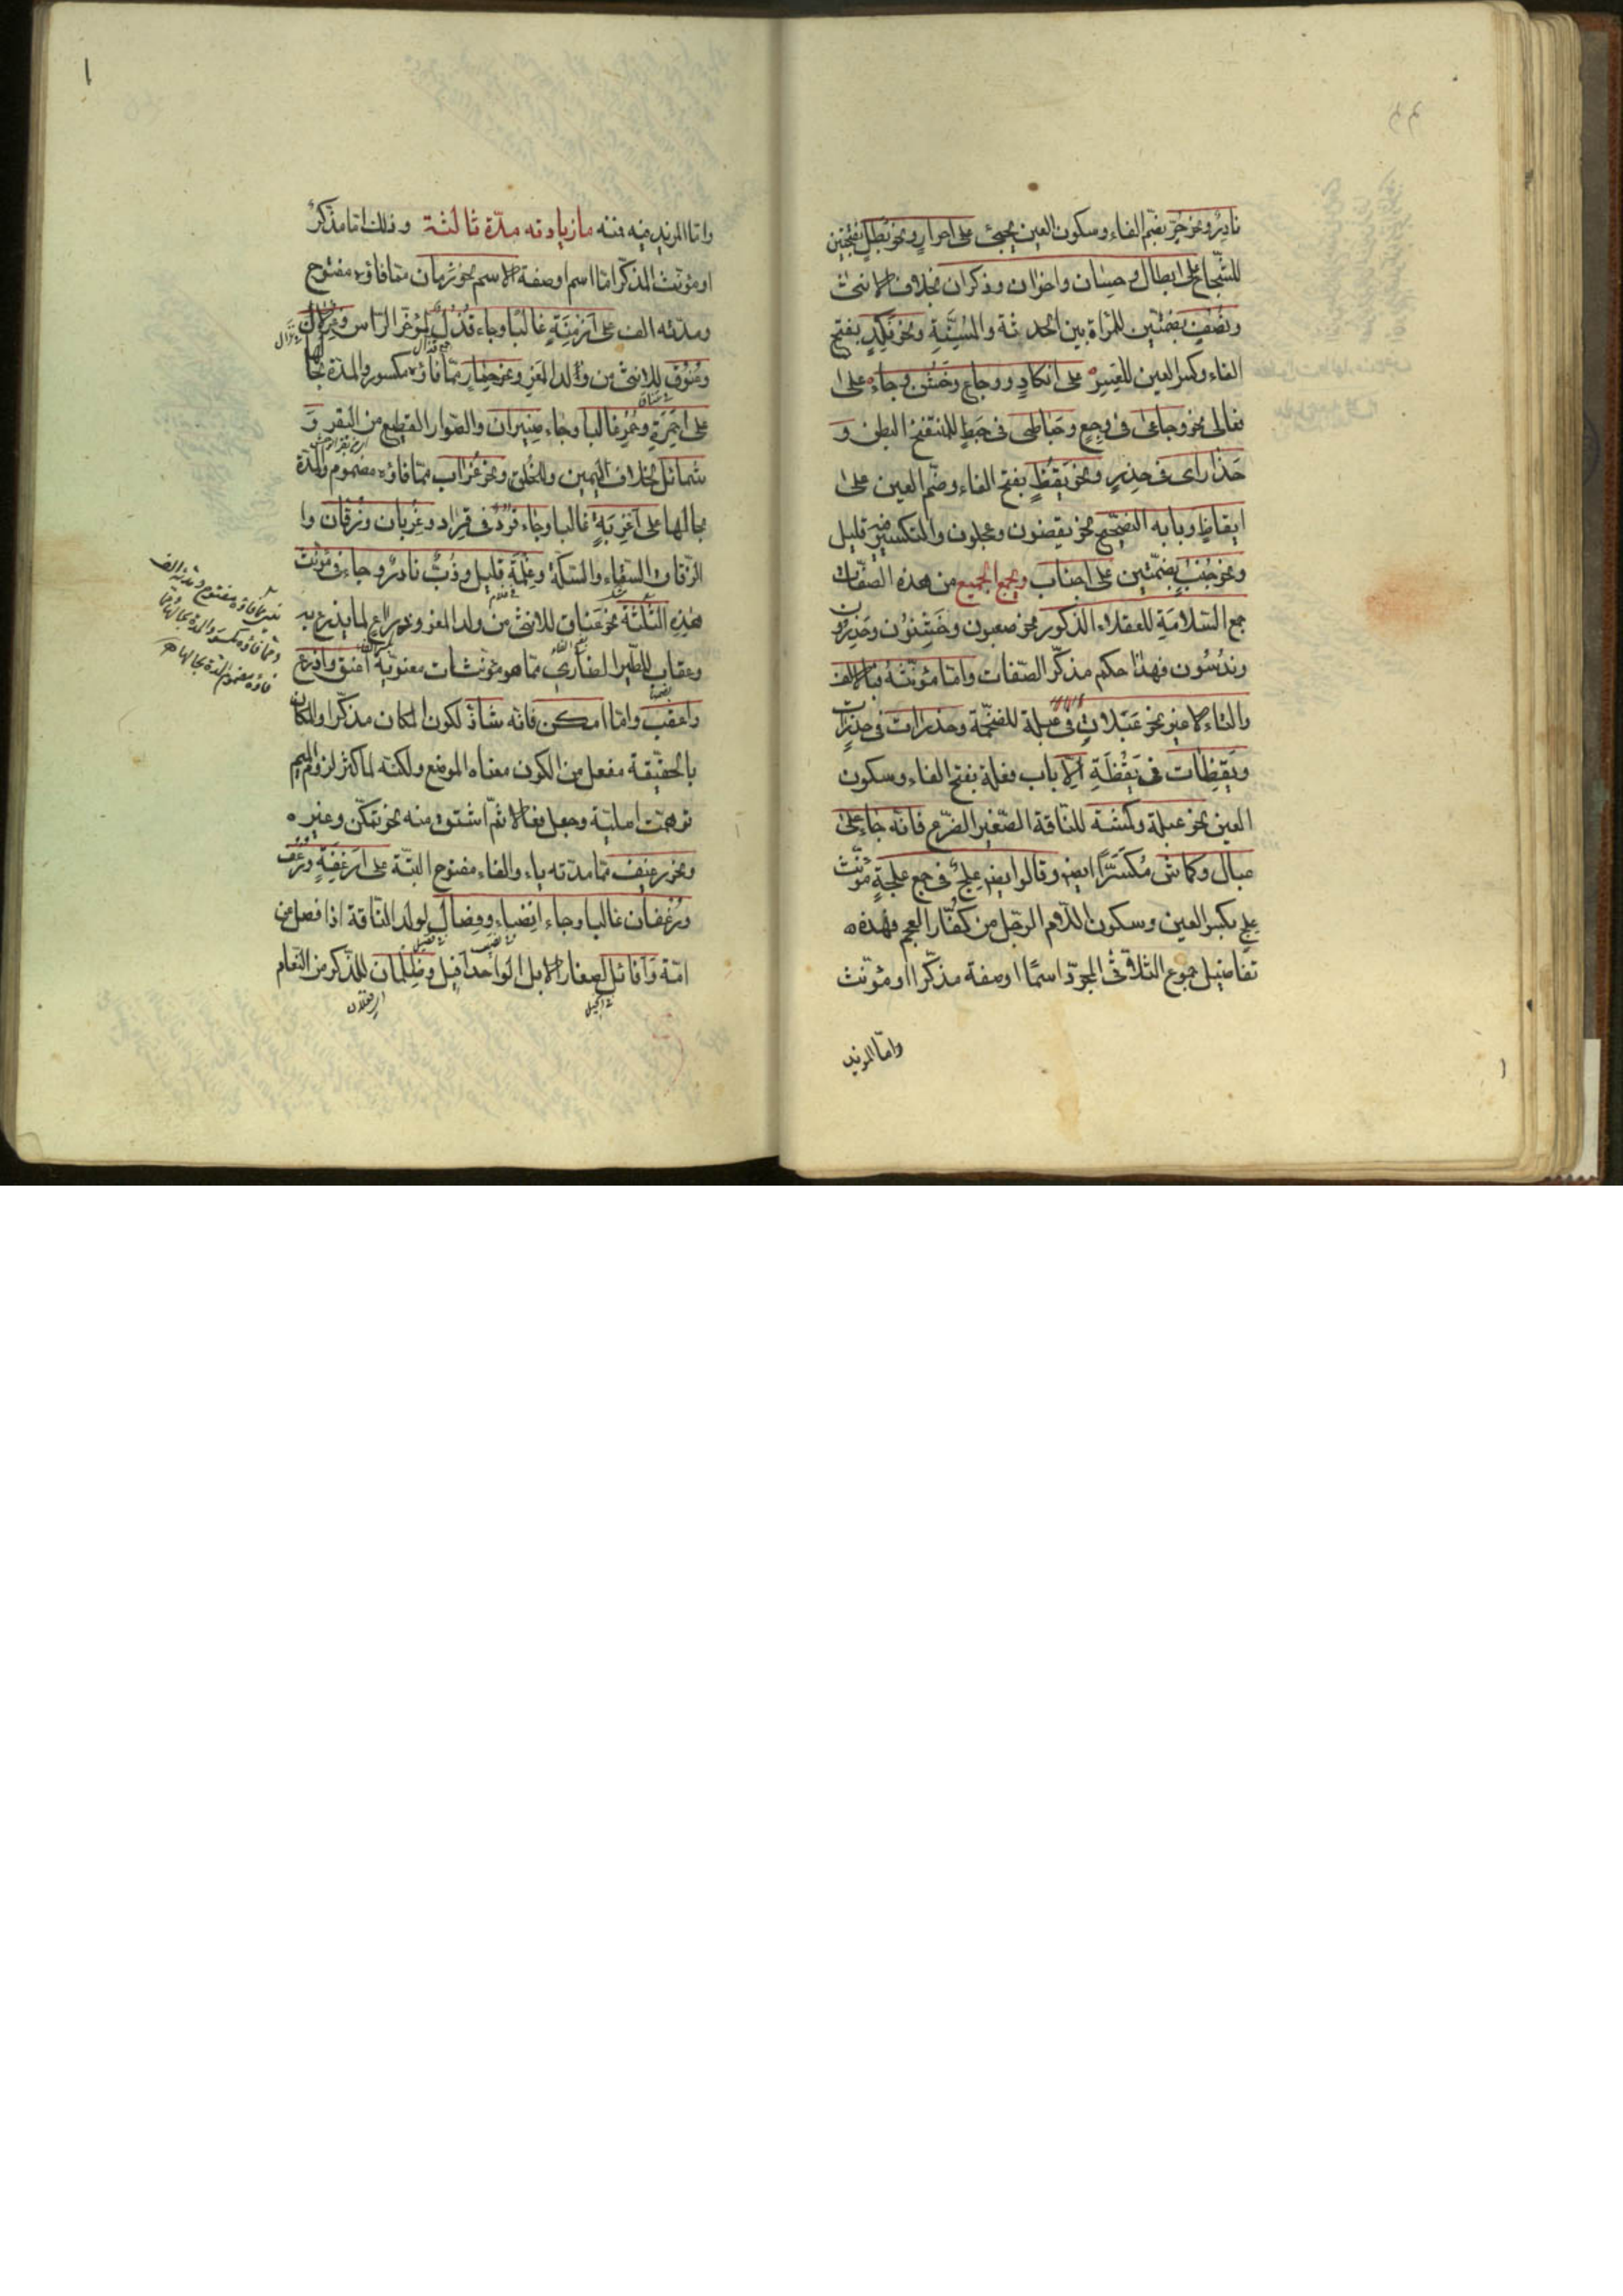 نادر ونحو حرّ بضمّ الفاء وسكون العين يجيئ على احرار ونحو بطل بفتحتين
للشّجاع على ابطال وحسان واخوان وذكران بخلاف الانثى
ونصف بضمّتين للمراة بين الحدثة والمُسِنَّةِ ونحو نكِدٍ بفتح
الفاء وكسر العين للعَسِرِ على انكادٍ ووجاع وخشن وجاء على
فعالى نحو وجاعى فى وجِعٍ وحَبَاطى فى حبِطٍ للمنتفخ البطن و
حَذارى فى حذِرٍ ونحو يقُظٍ بفتح الفاء وضمّ العين على
ايقاظٍ وبابه التصحيح نحو يقضون وعجلون والتكسير فيه قليل
ونحو جُنُبٍ بضمّتين على اجناب ويجمع الجميع من هذه الصّفات
جمع السّلامَةِ للعقلاء الذكور نحو صعبون وخَشِنُون وحَذِرُون
وندُسُون فهذا حكم مذكّر الصّفات وامّا مؤنّثه فبالالف
والتاء لا غير نحو عَبَلات فى عبلة للضخمة وحذرات فى حذرة
ويَقُظات فى يَقُظَةٍ الّا باب فعلة بفتح الفاء وسكون
العين نحو عبلة وكمشة للنّاقة الصّغير الضّرع فانّه جاء على
عبال وكماش مُكَسَّرًا ايضا وقالوا ايضا عِلَجٌ فى جمع علجةٍ مؤنّث
علج بكسر العين وسكون اللّام الرّجل من كفّار العجم فهذه
تفاصيل جموع الثلاثى المجرّد اسمًا او صفة مذكّرا او مؤنّث
وامّا المزيد
وامّا المزيد فيه فمنه مازيادته مدّة ثالثة وذلك امّا مذكّر
او مؤنّث المذكّر امّا اسم او صفة الاسم نحو زمان ممّا فاؤه مفتوح
ومدّته الف على اَزمِنَةٍ غالبًا وجاء قُذُلٌ لمؤخّر الرّاس وغِزلان
وعُنُوق للانثى من ولد المَعِز ونحو حِمار ممّا فاؤه مكسور والمدّة بحالها
على احمِرَةٍ وحُمُر غالبا وجاء صِيَران والصّوار القطيع من البقر وَ
شمائل بخلاف اليمين والخُلق ونحو غُراب ممّا فاؤه مضموم والمدّة
بحالها على اَغرِبَةٍ غالبا وجاء قُرُدٌ فى قُراد وغِربان وزُقّان وا
الزّقاق السّقاء والسّكّة وغِلْمَة قليل وذُبٌّ نادر وجاء فى مؤنّث
هذه الثّلثة نحو عَناق للانثى من ولد المعز وذراع لما يذرع به
وعقاب للطّير الضّارى ممّا هو مؤنّثات معنويّة اعنق واذرع
واعقب وامّا امكن فانّه شاذّ لكون المكان مذكّرا والمكان
بالحقيقة مفعل من الكون معناه الموضع ولكنّه لمّا كثر لزوم الميم
توهّمت اصليّة وجعل فعالا ثمّ اشتق منه نحو تمكّن وغيره
ونحو رغيف ممّا مدّته ياء والفاء مفتوح البتّة على اَرغِفَةٍ ورُغُف
ورُغفان غالبا وجاء انصِباء وفِصال لولد النّاقة اذا فصل من
امّه وَاَفائل لصغار الابل الواحد افيل وظِلمان للذّكر من النّعام